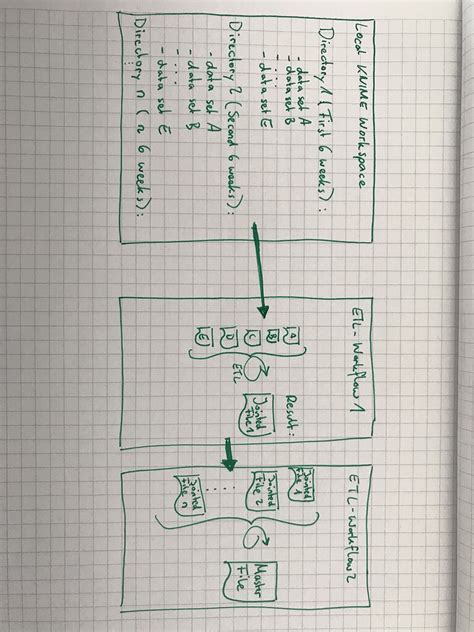 Local KNIME Workspace
Directory 1 (First 6 weeks):
- data set A
- data set B
⋮
- data set E
Directory 2 (Second 6 weeks):
- data set A
- data set B
⋮
- data set E
Directory n (n 6 weeks):
⋮
ETL-Workflow1
A
B
C
D
E
ETL
Result:
Jointed
File1
ETL-Workflow2
Jointed
File 1
Jointed
File 2
⋮
Jointed
File n
Master
File